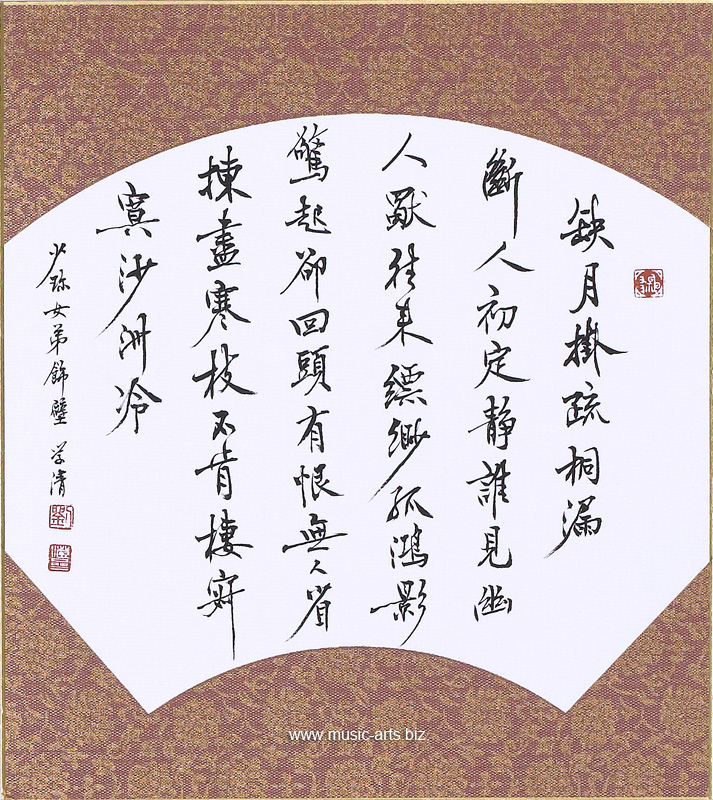 缺月掛疏桐漏
斷人初定靜誰見幽
人獸往來縹緲孤鴻影
驚起卻回頭有恨無人省
揀盡寒枝不肯棲寂
寞沙洲冷
少珎女弟飾壁 学清
劉
www.music-arts.biz